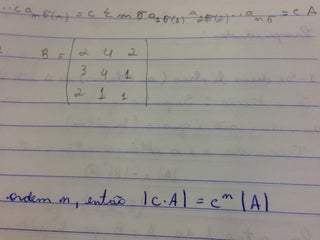 ..c a_nσ(n) = c Σ sgn σ a_1σ(1) a_2σ(2) ... a_nσ = c A
B = | 2 4 2 |
| 3 4 1 |
| 2 1 1 |
ordem n, então |c·A| = cⁿ |A|